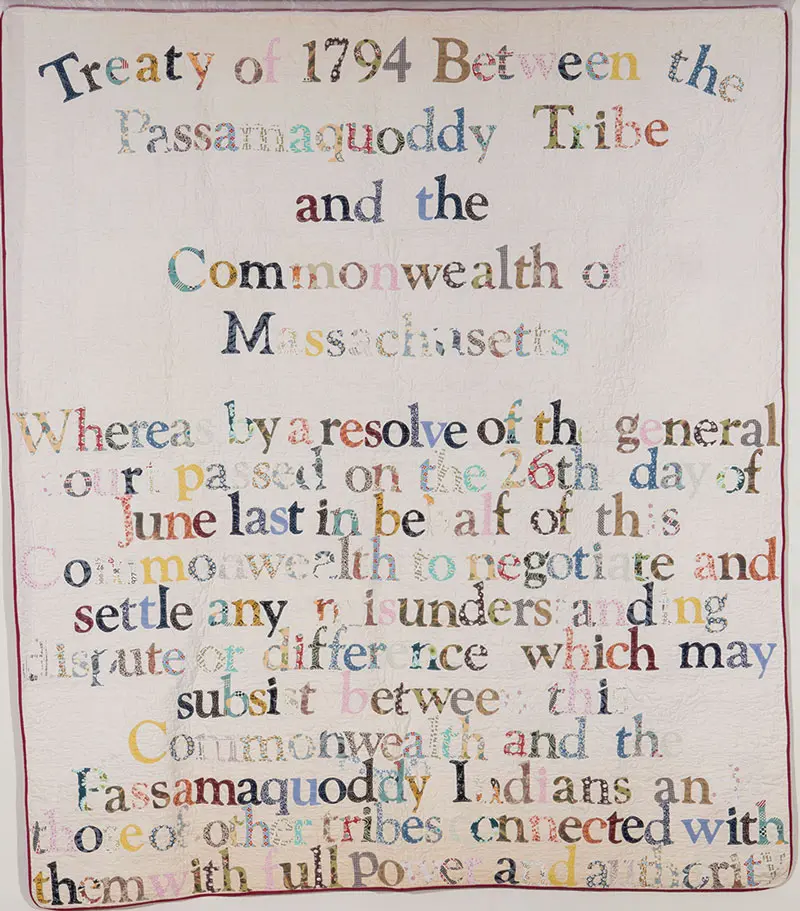 Treaty of 1794 Between the
Passamaquoddy Tribe
and the
Commonwealth of
Massachusetts
Whereas by a resolve of the general
court passed on the 26th day of
June last in behalf of this
Commonwealth to negotiate and
settle any misunderstanding
dispute or difference which may
subsist between this
Commonwealth and the
Passamaquoddy Indians and
those of other tribes connected with
them with full power and authority